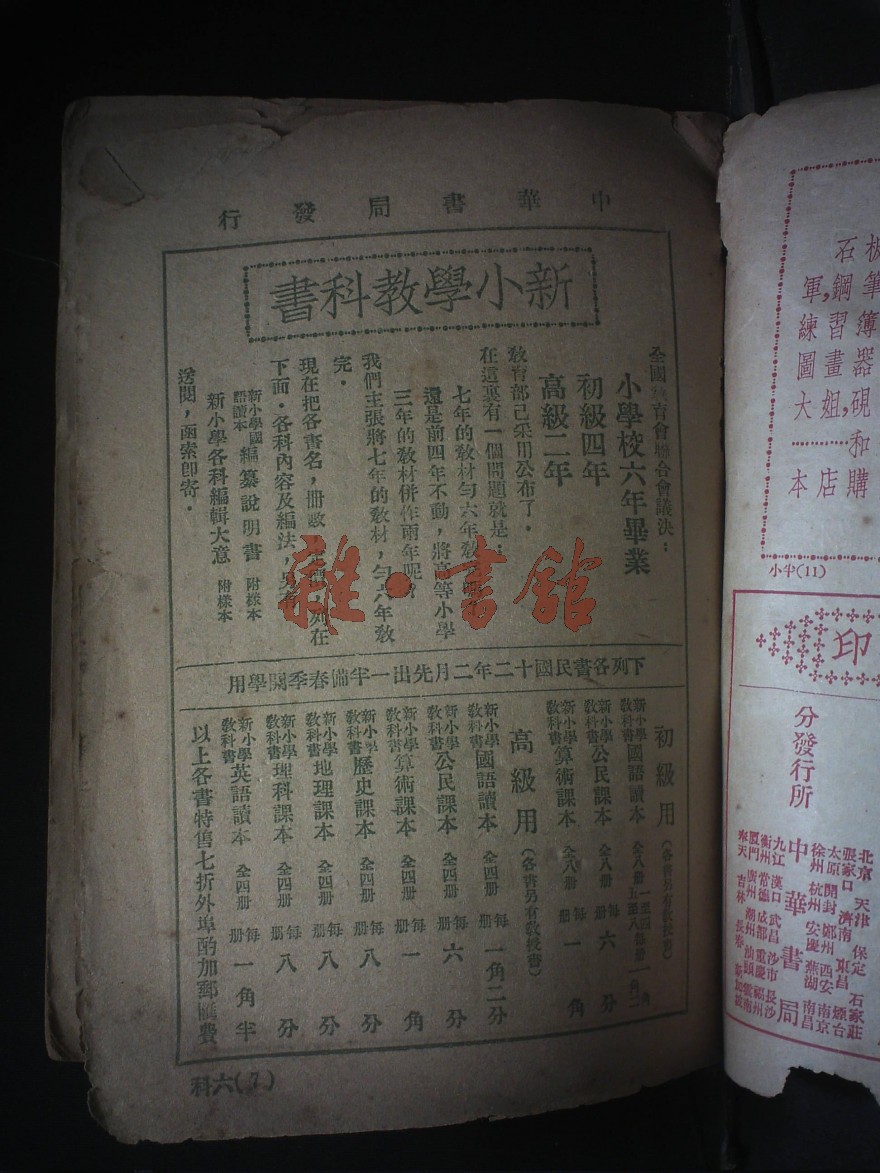 中華書局發行
新小學教科書
全國教育會聯合會議決：
小學校六年畢業
初級四年
高級二年
教育部已采用公布了．
在這裏有一個問題就是：
七年的教材勻六年教
還是前四年不動，將高等小學
三年的教材併作兩年呢？
我們主張將七年的教材，勻六年教
完．
現在把各書名，冊數，列在
下面．各科內容及編法，另有
新小學國語讀本編纂說明書 附樣本
新小學各科編輯大意 附樣本
送閱，函索卽寄．
下列各書民國十二年二月先出一半備春季開學用
初級用（各書另有教授書）
新小學教科書國語讀本 全八册
新小學教科書公民課本 全八册 每册六分
新小學教科書算術課本 全八册 每册一角
高級用（各書另有教授書）
新小學教科書國語讀本 全四册 每册一角二分
新小學教科書公民課本 全四册 每册六分
新小學教科書算術課本 全四册 每册一角
新小學教科書歷史課本 全四册 每册八分
新小學教科書地理課本 全四册 每册八分
新小學教科書理科課本 全四册 每册八分
新小學教科書英語讀本 全四册 每册一角半
以上各書特售七折外埠酌加郵匯費
科六(7)
雜·書館
板筆簿器硯和購
石鋼習畫姐，店
軍，練圖大……本
小半(11)
印
分發行所
中華書局
北京 天津 保定 石家莊
張家口 濟南 東昌 煙台
太原 開封 鄭州 西安 南京
徐州 杭州 安慶 蕪湖 南昌
九江 漢口 武昌 沙市 長沙
衡州 常德 成都 重慶 福州
廈門 廣州 潮州 汕頭 雲南
奉天 吉林 長春 新加坡